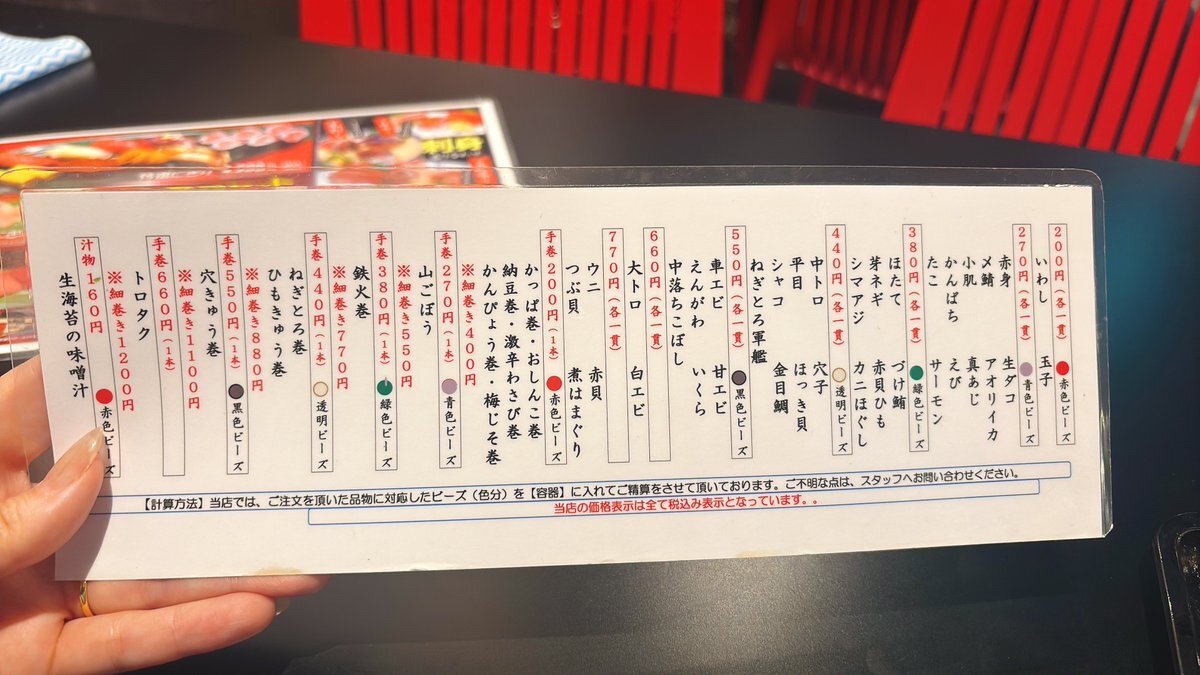 200円（各一貫） 赤色ビーズ
いわし 玉子
270円（各一貫） 青色ビーズ
赤身 生ダコ
〆鯖 アオリイカ
小肌 真あじ
かんぱち えび
たこ サーモン
380円（各一貫） 緑色ビーズ
ほたて づけ鮪
芽ネギ 赤貝ひも
シマアジ カニほぐし
440円（各一貫） 透明ビーズ
中トロ 穴子
平目 ほっき貝
シャコ 金目鯛
ねぎとろ軍艦
550円（各一貫） 黒色ビーズ
車エビ 甘エビ
えんがわ いくら
中落ちこぼし
660円（各一貫）
大トロ 白エビ
770円（各一貫）
ウニ 赤貝
つぶ貝 煮はまぐり
手巻200円（1本） 赤色ビーズ
かっぱ巻・おしんこ巻
納豆巻・激辛わさび巻
かんぴょう巻・梅じそ巻
※細巻き400円
手巻270円（1本） 青色ビーズ
山ごぼう
※細巻き550円
手巻380円（1本） 緑色ビーズ
鉄火巻
※細巻き770円
手巻440円（1本） 透明ビーズ
ねぎとろ巻
ひもきゅう巻
※細巻き880円
手巻550円（1本） 黒色ビーズ
穴きゅう巻
※細巻き1100円
手巻660円（1本）
トロタク
※細巻き1200円
汁物160円 赤色ビーズ
生海苔の味噌汁
【計算方法】当店では、ご注文を頂いた品物に対応したビーズ（色分）を【容器】に入れてご精算をさせて頂いております。ご不明な点は、スタッフへお問い合わせください。
当店の価格表示は全て税込み表示となっています。。
刺身